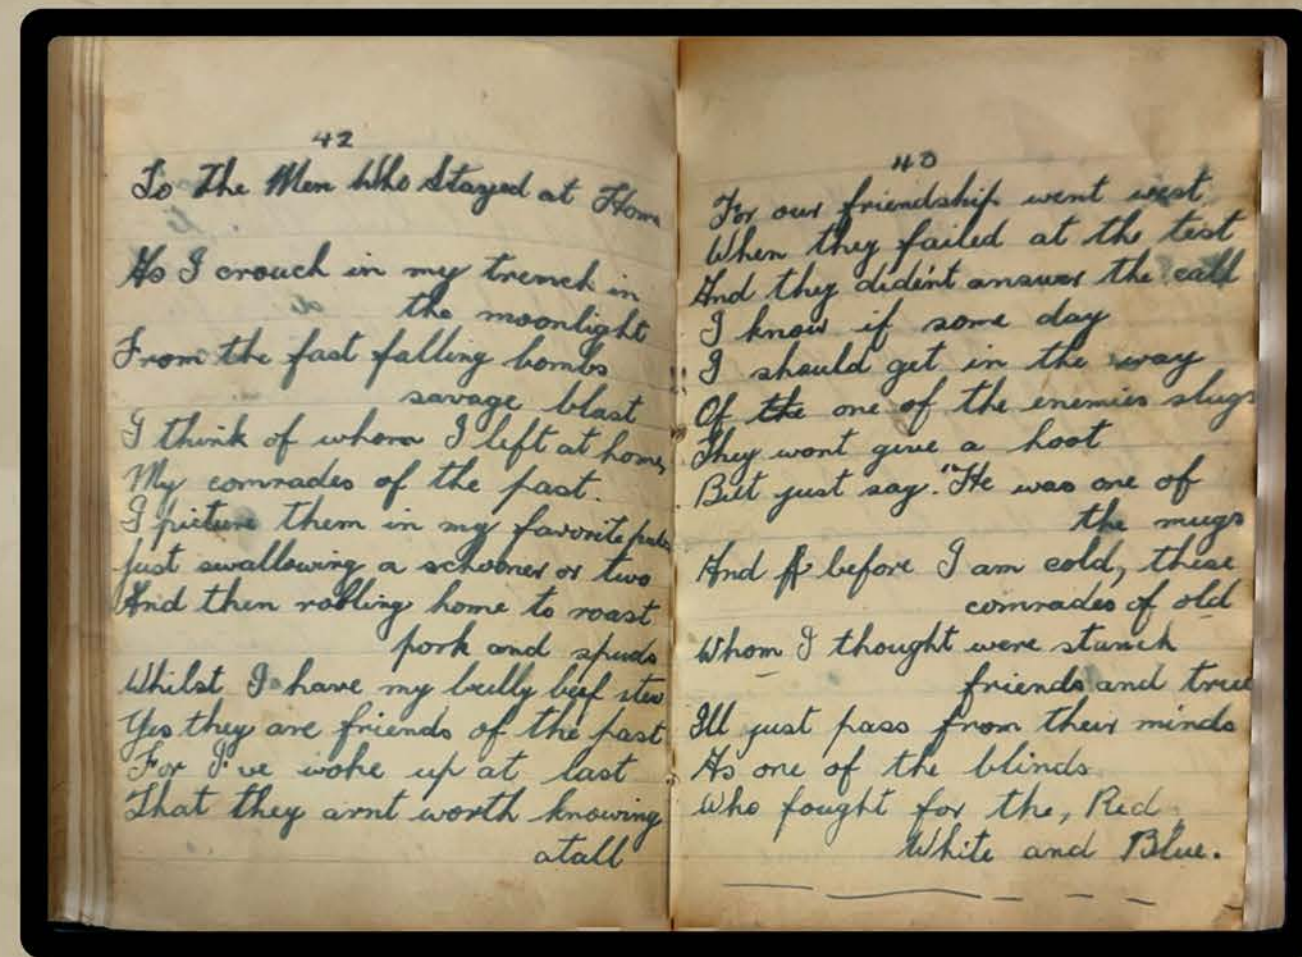 42
To The Men Who Stayed at Home
As I crouch in my trench in
the moonlight
From the fast falling bombs
savage blast
I think of whom I left at home,
My comrades of the past.
I picture them in my favorite
Just swallowing a schooner or two
And then rolling home to roast
pork and spuds
Whilst I have my bully beef stew
Yes they are friends of the past
For I've woke up at last
That they arnt worth knowing
atall
43
For our friendship went west
When they failed at the test
And they didén't answer the call
I know if some day
I should get in the way
Of the one of the enemies slugs
They wont give a hoot
But just say. "He was one of
the mugs
And before I am cold, these
comrades of old
Whom I thought were stanch
friends and true
Ill just pass from their minds
As one of the blinds
Who fought for the, Red,
White and Blue.